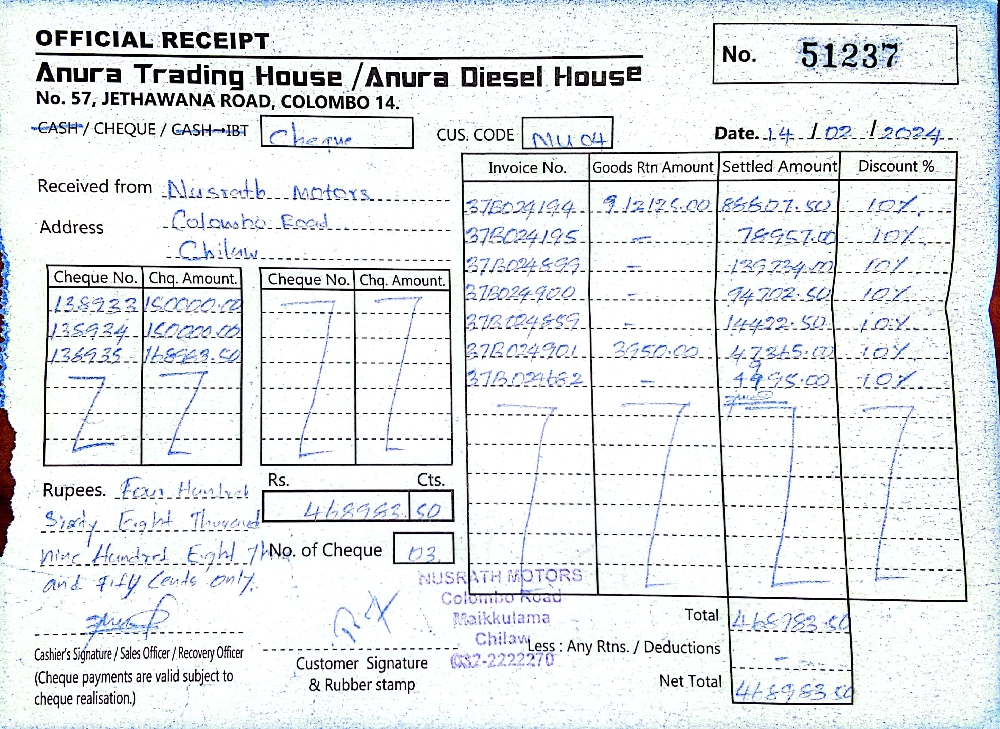 OFFICIAL RECEIPT
No. 51237
Anura Trading House / Anura Diesel House
No. 57, JETHAWANA ROAD, COLOMBO 14.
CASH / CHEQUE / CASH - IBT Cheque CUS. CODE NU 04 Date. 14 / 02 / 2024
Invoice No. Goods Rtn Amount Settled Amount Discount %
Received from Nusrath Motors
Address Colombo Road
Chilaw
37B024194 88807.50 10%
37B024195 - 78957.00 10%
37B024899 - 139734.00 10%
37B024900 - 94702.50 10%
37B024859 - 14422.50 10%
37B024901 3950.00 47365.00 10%
37B024682 - 4995.00 10%
Cheque No. Chq. Amount. Cheque No. Chq. Amount.
138933 150000.00
138934 150000.00
138935 168983.50
Rupees. Four Hundred
Sixty Eight Thousand
nine Hundred Eight Three
and Fifty Cents only.
Rs. Cts.
468983 50
No. of Cheque 03
NUSRATH MOTORS
Colombo Road
Maikkulama
Chilaw
032-2222270
Total 468983.50
Less : Any Rtns. / Deductions -
Net Total 468983.50
Cashier's Signature / Sales Officer / Recovery Officer
(Cheque payments are valid subject to
cheque realisation.)
Customer Signature
& Rubber stamp